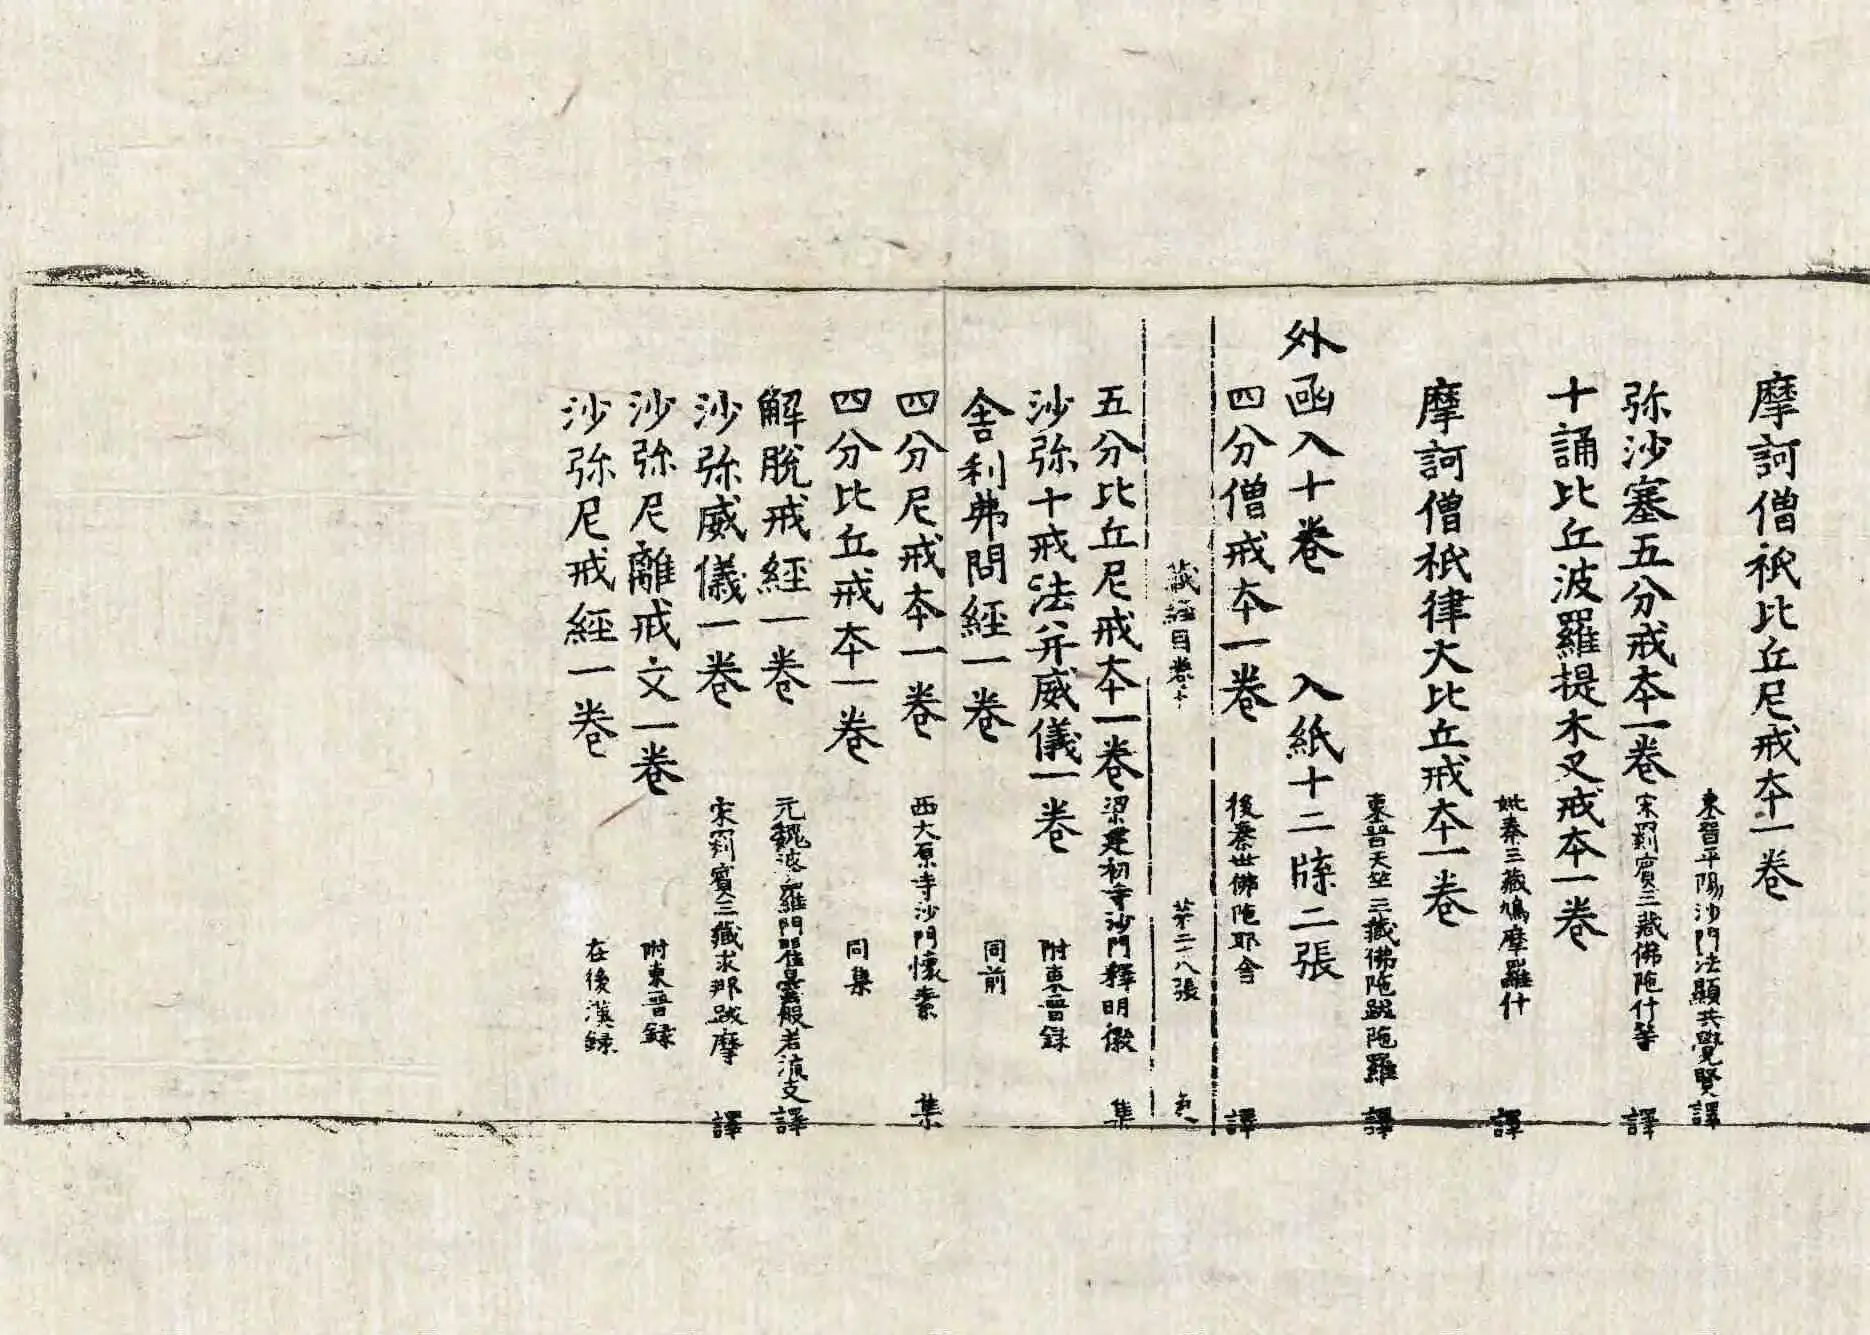 摩訶僧祇比丘尼戒夲一卷
東晉平陽沙門法顯共覺賢譯
弥沙塞五分戒夲一卷 宋罽賓三藏佛陁什等 譯
十誦比丘波羅提木叉戒夲一卷
姚秦三藏鳩摩羅什 譯
摩訶僧祇律大比丘戒夲一卷
東晉天竺三藏佛陁跋陁羅 譯
外函入十卷 入紙十二牒二張
四分僧戒夲一卷 後秦世佛陁耶舍 譯
藏經目卷十 苐二八張
五分比丘尼戒夲一卷 梁建初寺沙門釋明徽 集
沙弥十戒法并威儀一卷 附東晉録
舍利弗問經一卷 同前
四分尼戒夲一卷 西大原寺沙門懷素 集
四分比丘戒夲一卷 同集
解脫戒經一卷 元魏婆羅門瞿曇般若流支譯
沙弥威儀一卷 宋罽賓三藏求那跋摩 譯
沙弥尼離戒文一卷 附東晉録
沙弥尼戒經一卷 在後漢録